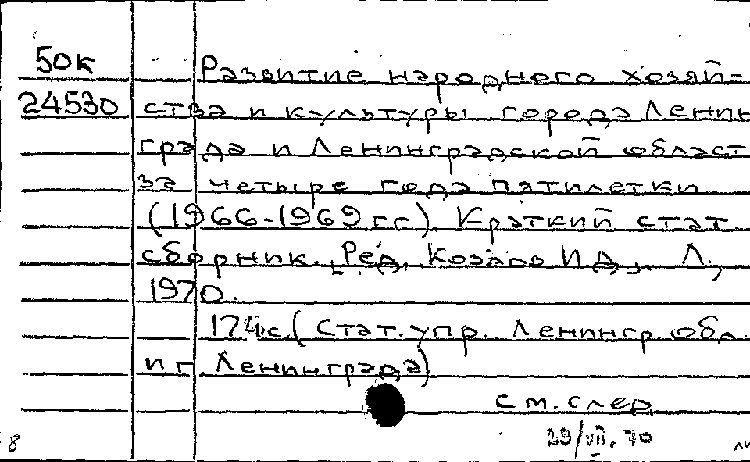 50к Развитие народного хозяй-
24530 ства и культуры города Ленин
града и Ленинградской област
за четыре года пятилетки
(1966-1969 гг). Краткий стат.
сборник. Ред. Козлов И.Д., Л.,
1970.
174с. (Стат. упр. Ленингр обл.
и г Ленинграда)
см. след
29/VII. 70
8